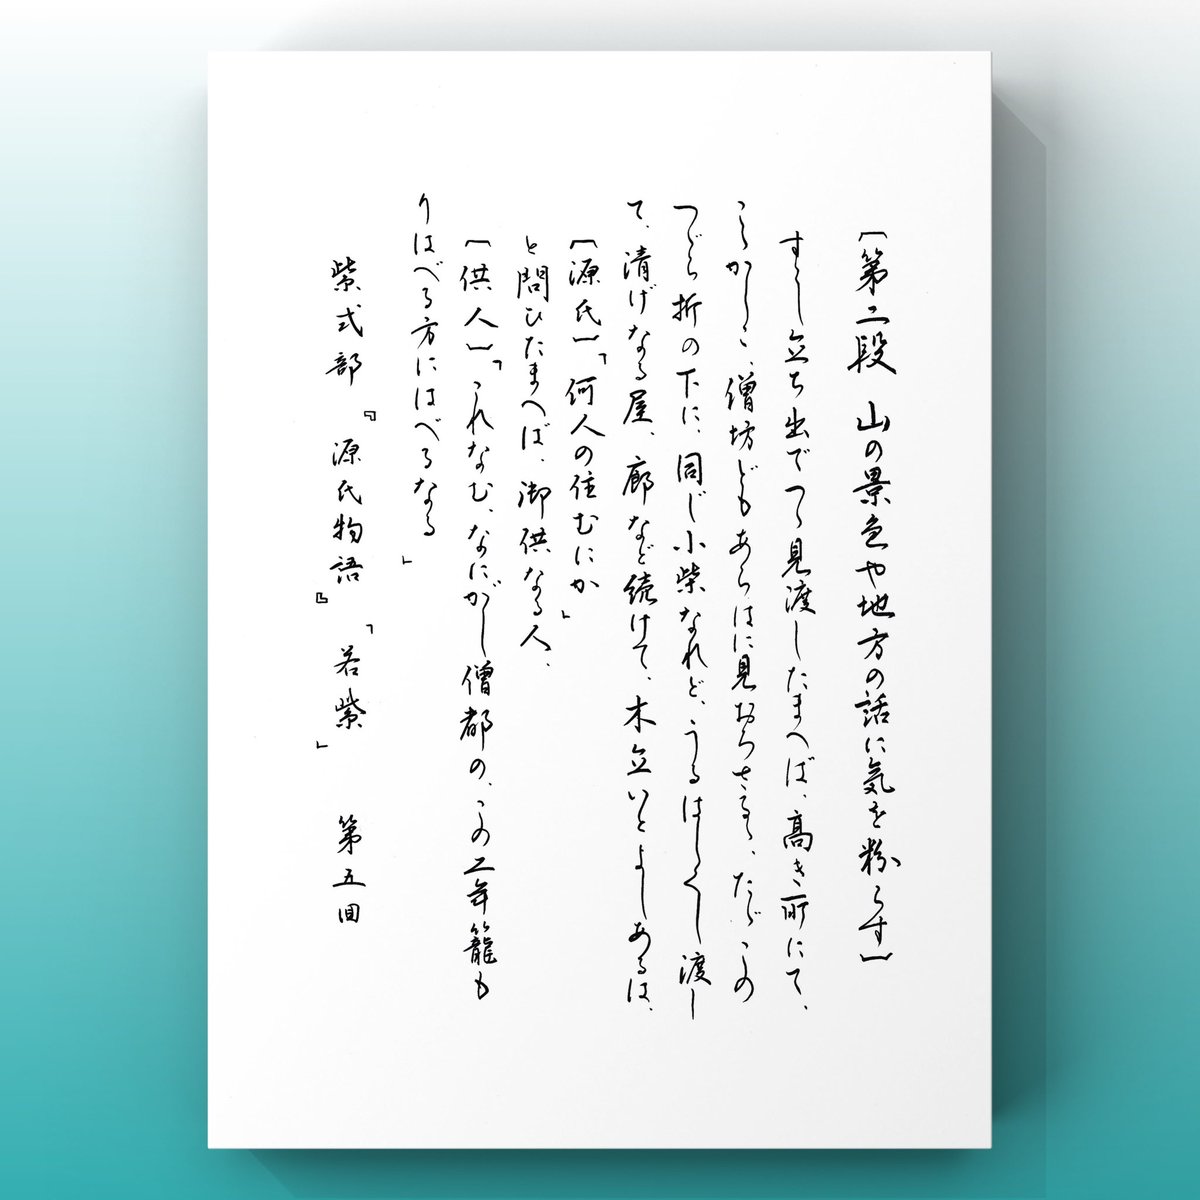 ［第二段　山の景色や地方の話に気を紛らす］
すこし立ち出でつゝ見渡したまへば、高き所にて、
こゝかしこ、僧坊どもあらはに見おろさるゝ、たゞこの
つゞら折の下に、同じ小柴なれど、うるはしくし渡し
て、清げなる屋、廊など続けて、木立いとよしあるは、
［源氏］「何人の住むにか」
と問ひたまへば、御供なる人、
［供人］「これなむ、なにがし僧都の、この二年籠も
りはべる方にはべるなる」
紫式部『源氏物語』「若紫」　第五回